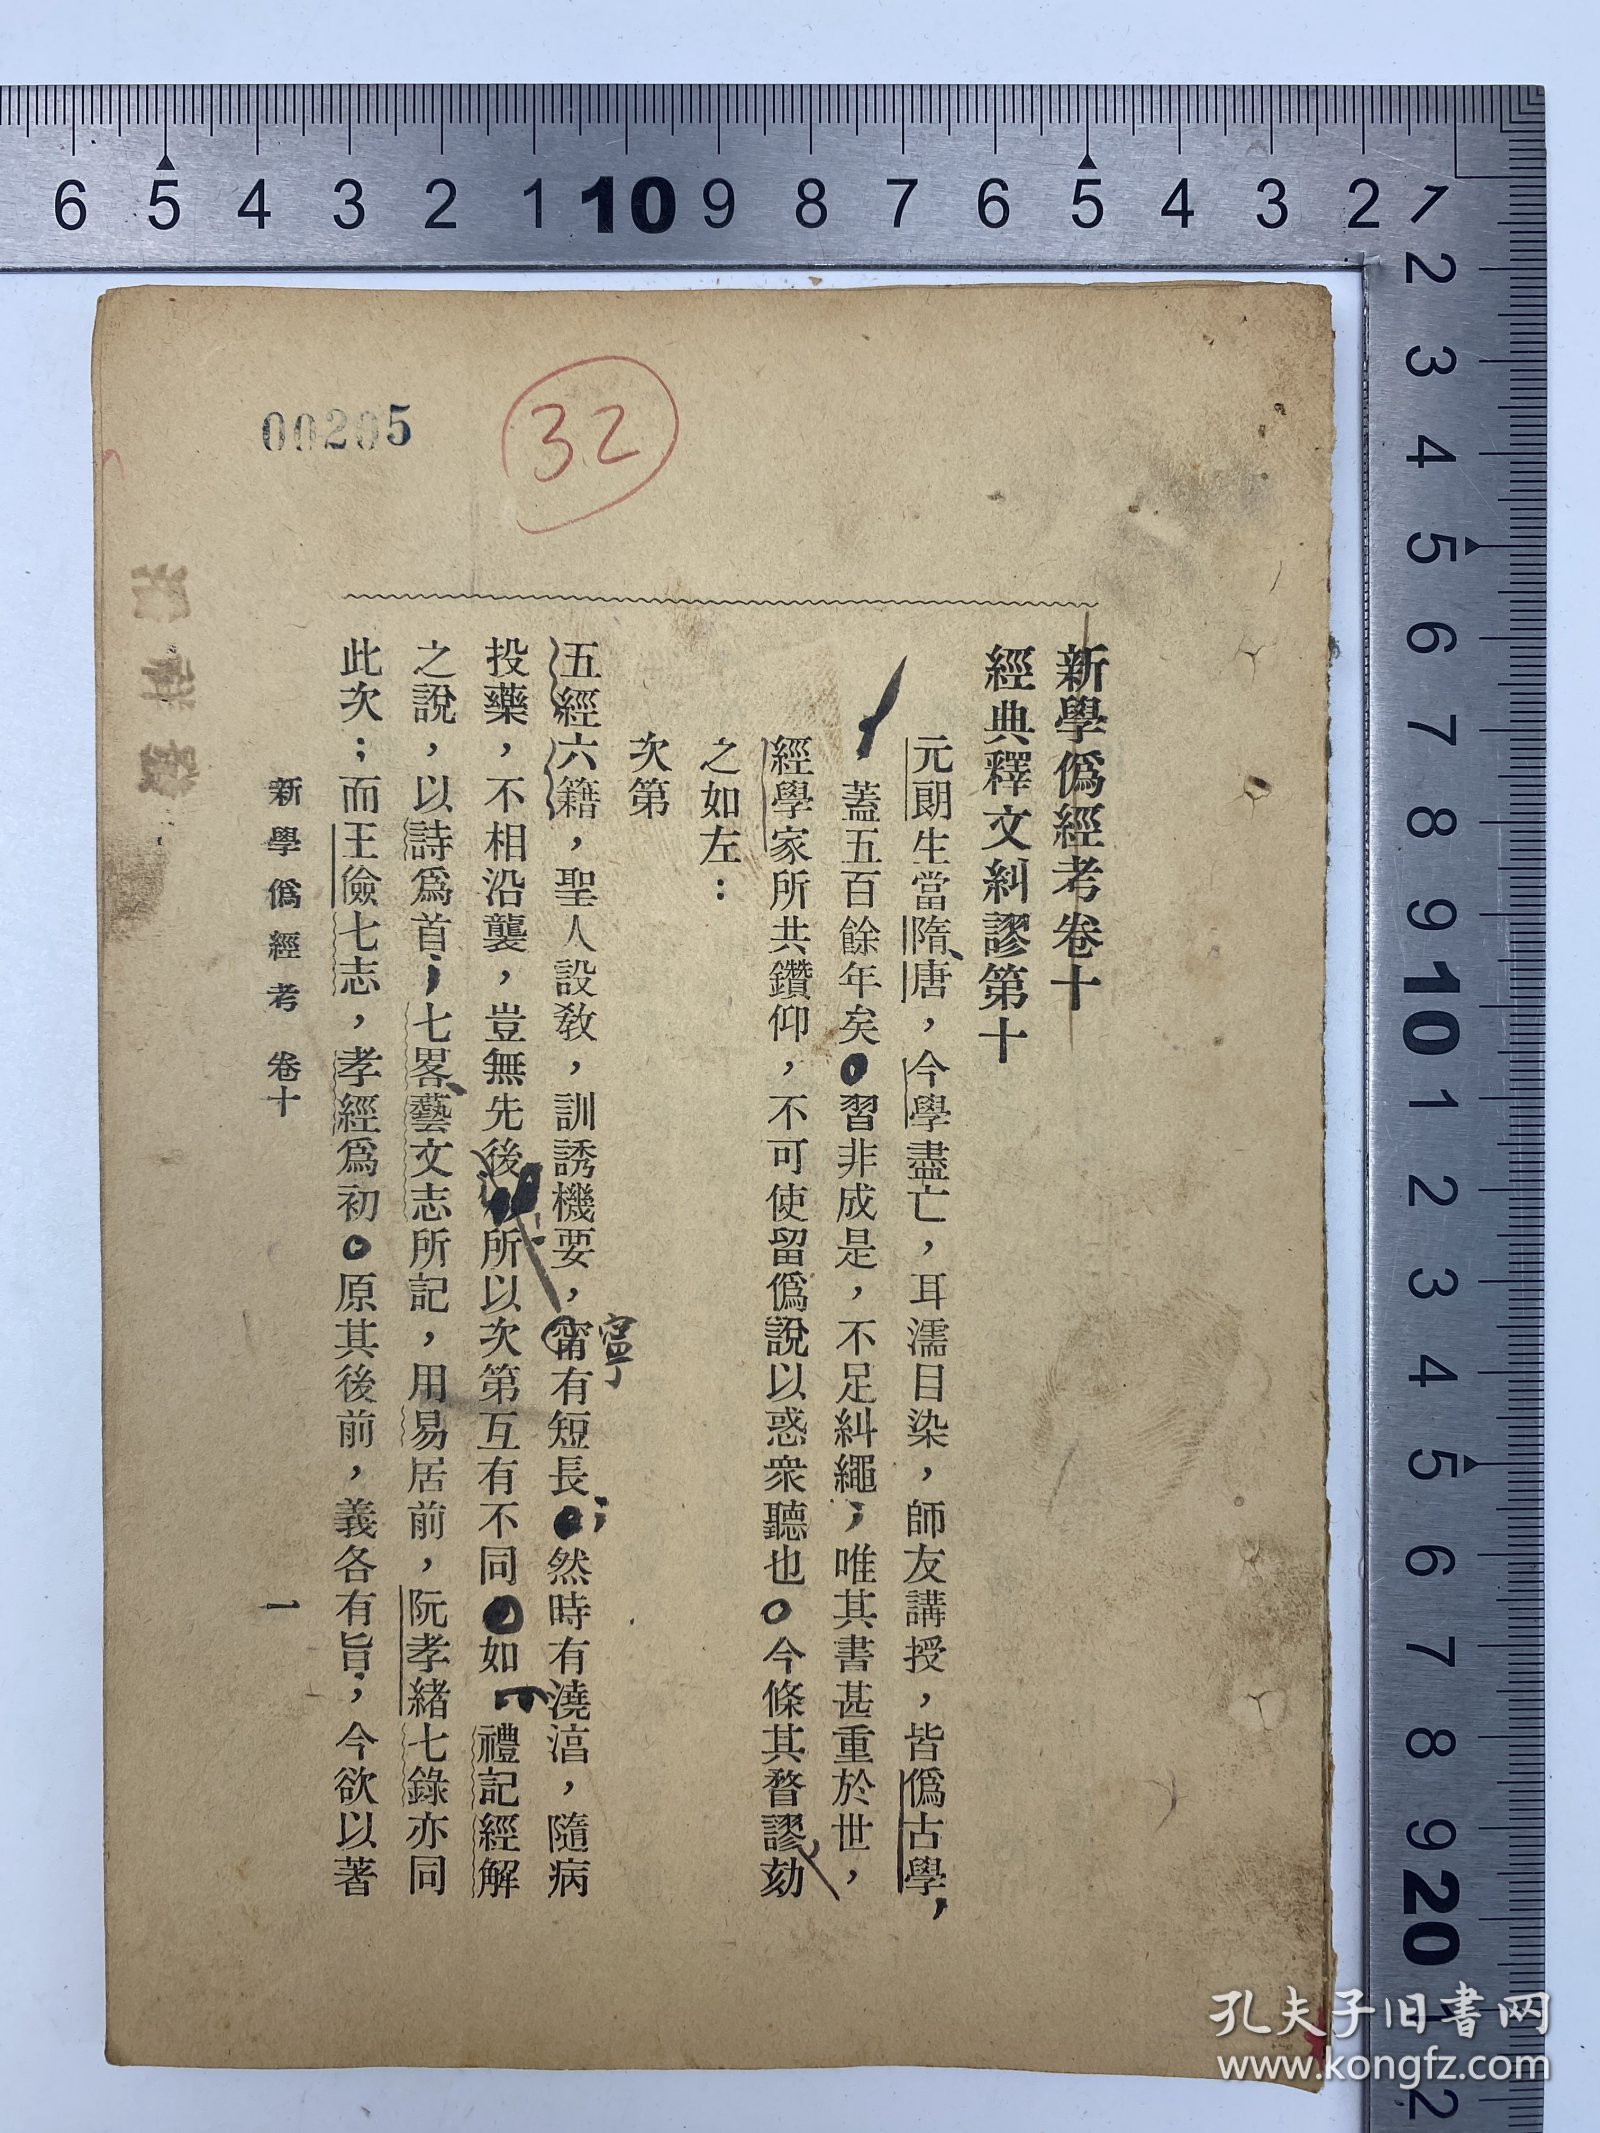 6 5 4 3 2 1 10 9 8 7 6 5 4 3 2 1
2 3 4 5 6 7 8 9 10 1 2 3 4 5 6 7 8 9 20 1 2
00205
32
新學僞經考卷十
經典釋文糾謬第十
元朗生當隋、唐，今學盡亡，耳濡目染，師友講授，皆僞古學，
蓋五百餘年矣。習非成是，不足糾繩；唯其書甚重於世，
經學家所共鑽仰，不可使留僞說以惑衆聽也。今條其瞀謬劾
之如左：
次第
五經六籍，聖人設敎，訓誘機要，甯有短長；然時有澆淳，隨病
寧
投藥，不相沿襲，豈無先後，所以次第互有不同。如禮記經解
之說，以詩爲首；七畧、藝文志所記，用易居前，阮孝緒七錄亦同
此次；而王儉七志，孝經爲初。原其後前，義各有旨；今欲以著
新學僞經考 卷十
一
孔夫子旧书网
www.kongfz.com